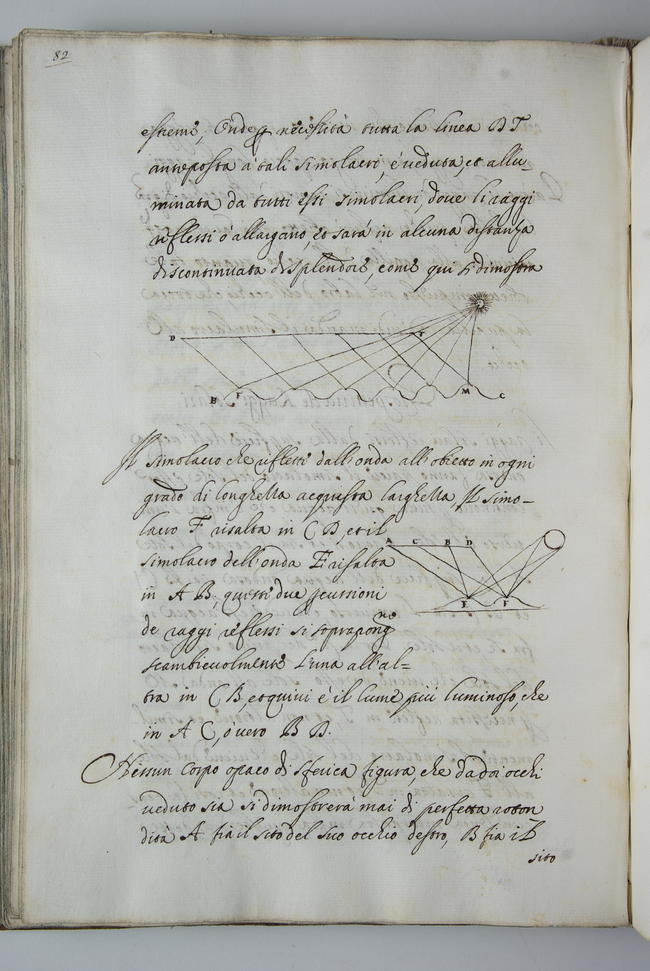 82
estremi, Onde p necessità tutta la linea B T
anteposta à tali simolacri, è ueduta, et allu-
minata da tutti essi simolacri, doue li raggi
riflessi s'allargano et sarà in alcuna distanza
discontinuata di splendore, come qui si dimostra
D T
B F M C
Il simolacro che riflette dall'onda all'obietto in ogni
grado di longhezza acquista larghezza, Il simo-
lacro F risalta in C B, et il
A C B D
simolacro dell'onda E risalta
in A B, questi due
E F
de raggi riflessi si soprapongno
scambieuolmente l'una all'al=
tra in C B, et quiui è il lume più luminoso, che
in A C, ò uero B D.
Nessun corpo opaco di sferica figura, che da doi occhi
ueduto sia si dimostrerà mai di perfetta roton
dità A sia il sito del suo occhio destro, B sia il
sito